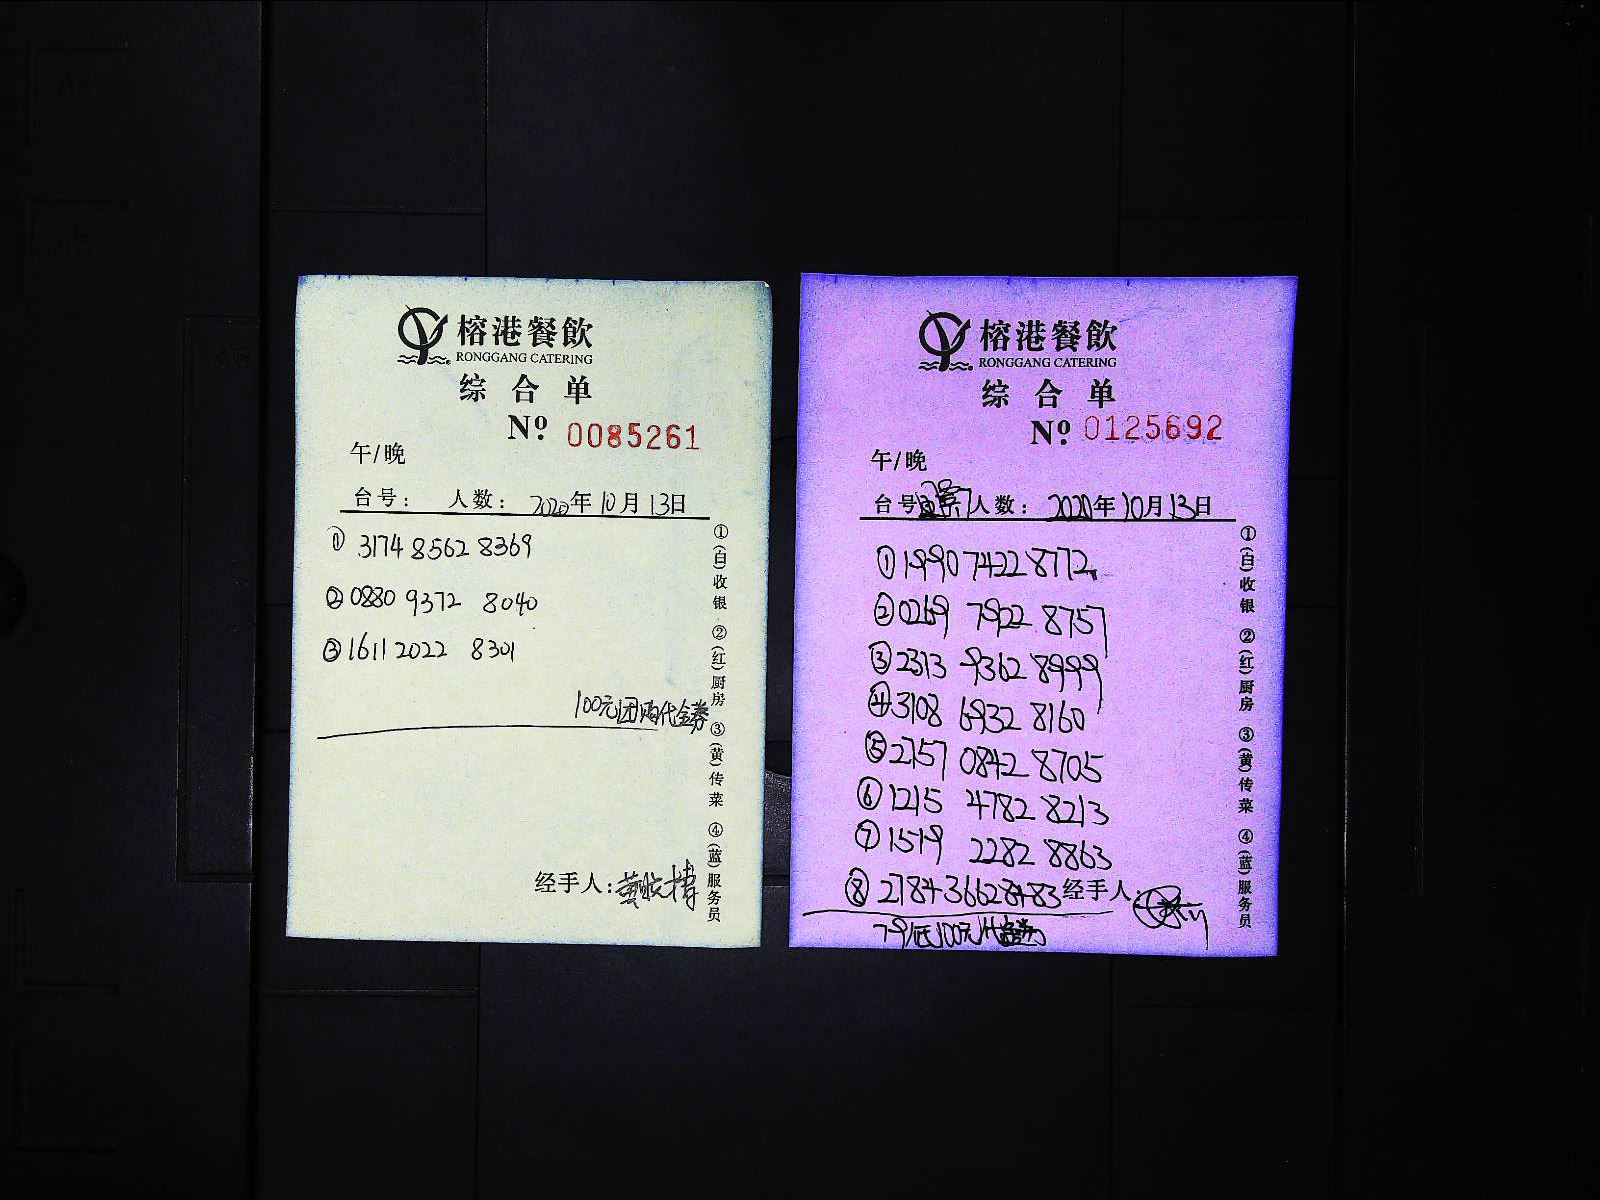 榕港餐飲
RONGGANG CATERING
综合单
Nº 0085261
午/晚
台号: 人数: 2020年10月13日
① 3174 8562 8369
② 0880 9372 8040
③ 1611 2022 8301
100元团购代金券
经手人:
①(白)收银 ②(红)厨房 ③(黄)传菜 ④(蓝)服务员
榕港餐飲
RONGGANG CATERING
综合单
Nº 0125692
午/晚
台号 人数: 2020年10月13日
① 1990 7422 8772
② 0269 7922 8757
③ 2313 9362 8999
④ 3108 6932 8160
⑤ 2157 0842 8705
⑥ 1215 4782 8213
⑦ 1519 2282 8863
⑧ 2784 3662 8483 经手人:
79抵100元代金券
①(白)收银 ②(红)厨房 ③(黄)传菜 ④(蓝)服务员